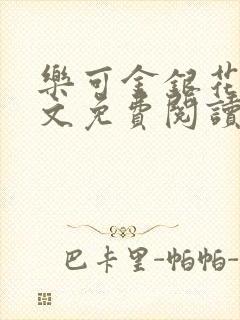 樂可金銀花
文免費閱讀
巴卡里-帕帕-